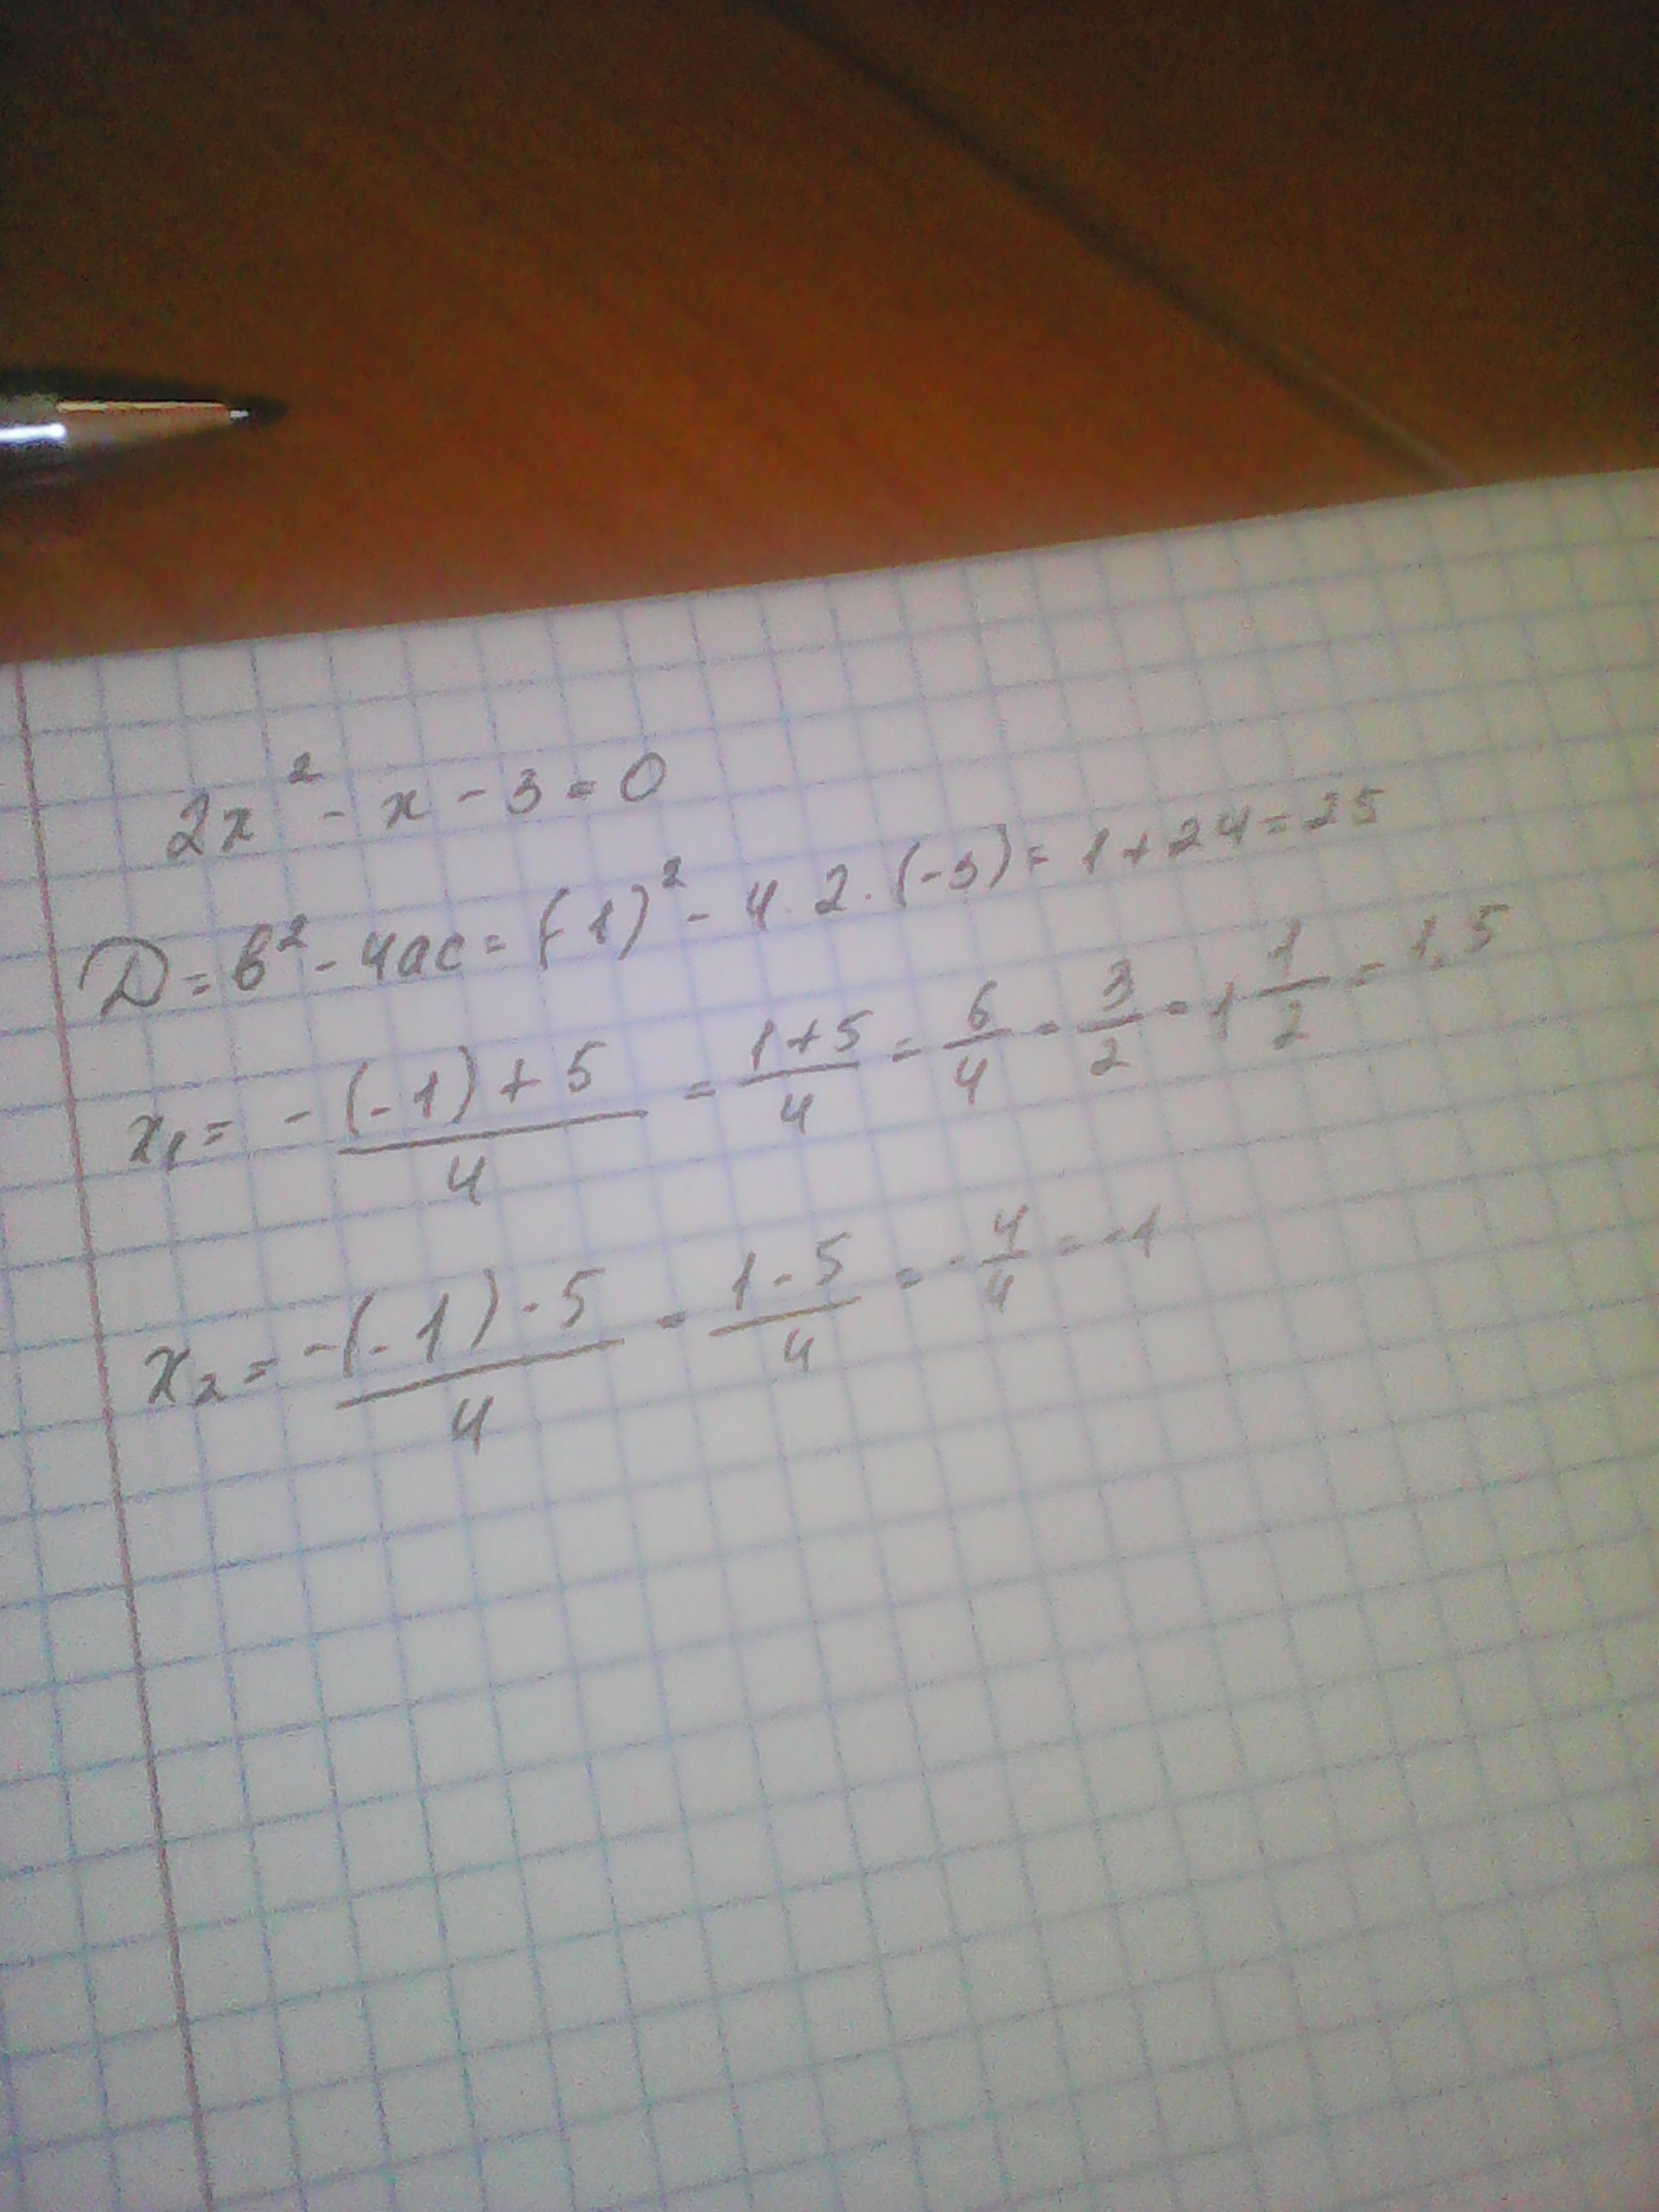 2x² - x - 3 = 0
D = b² - 4ac = (-1)² - 4 · 2 · (-3) = 1 + 24 = 25
x₁ = -(-1) + 5 / 4 = 1 + 5 / 4 = 6/4 = 3/2 = 1 1/2 = 1,5
x₂ = -(-1) - 5 / 4 = 1 - 5 / 4 = -4/4 = -1